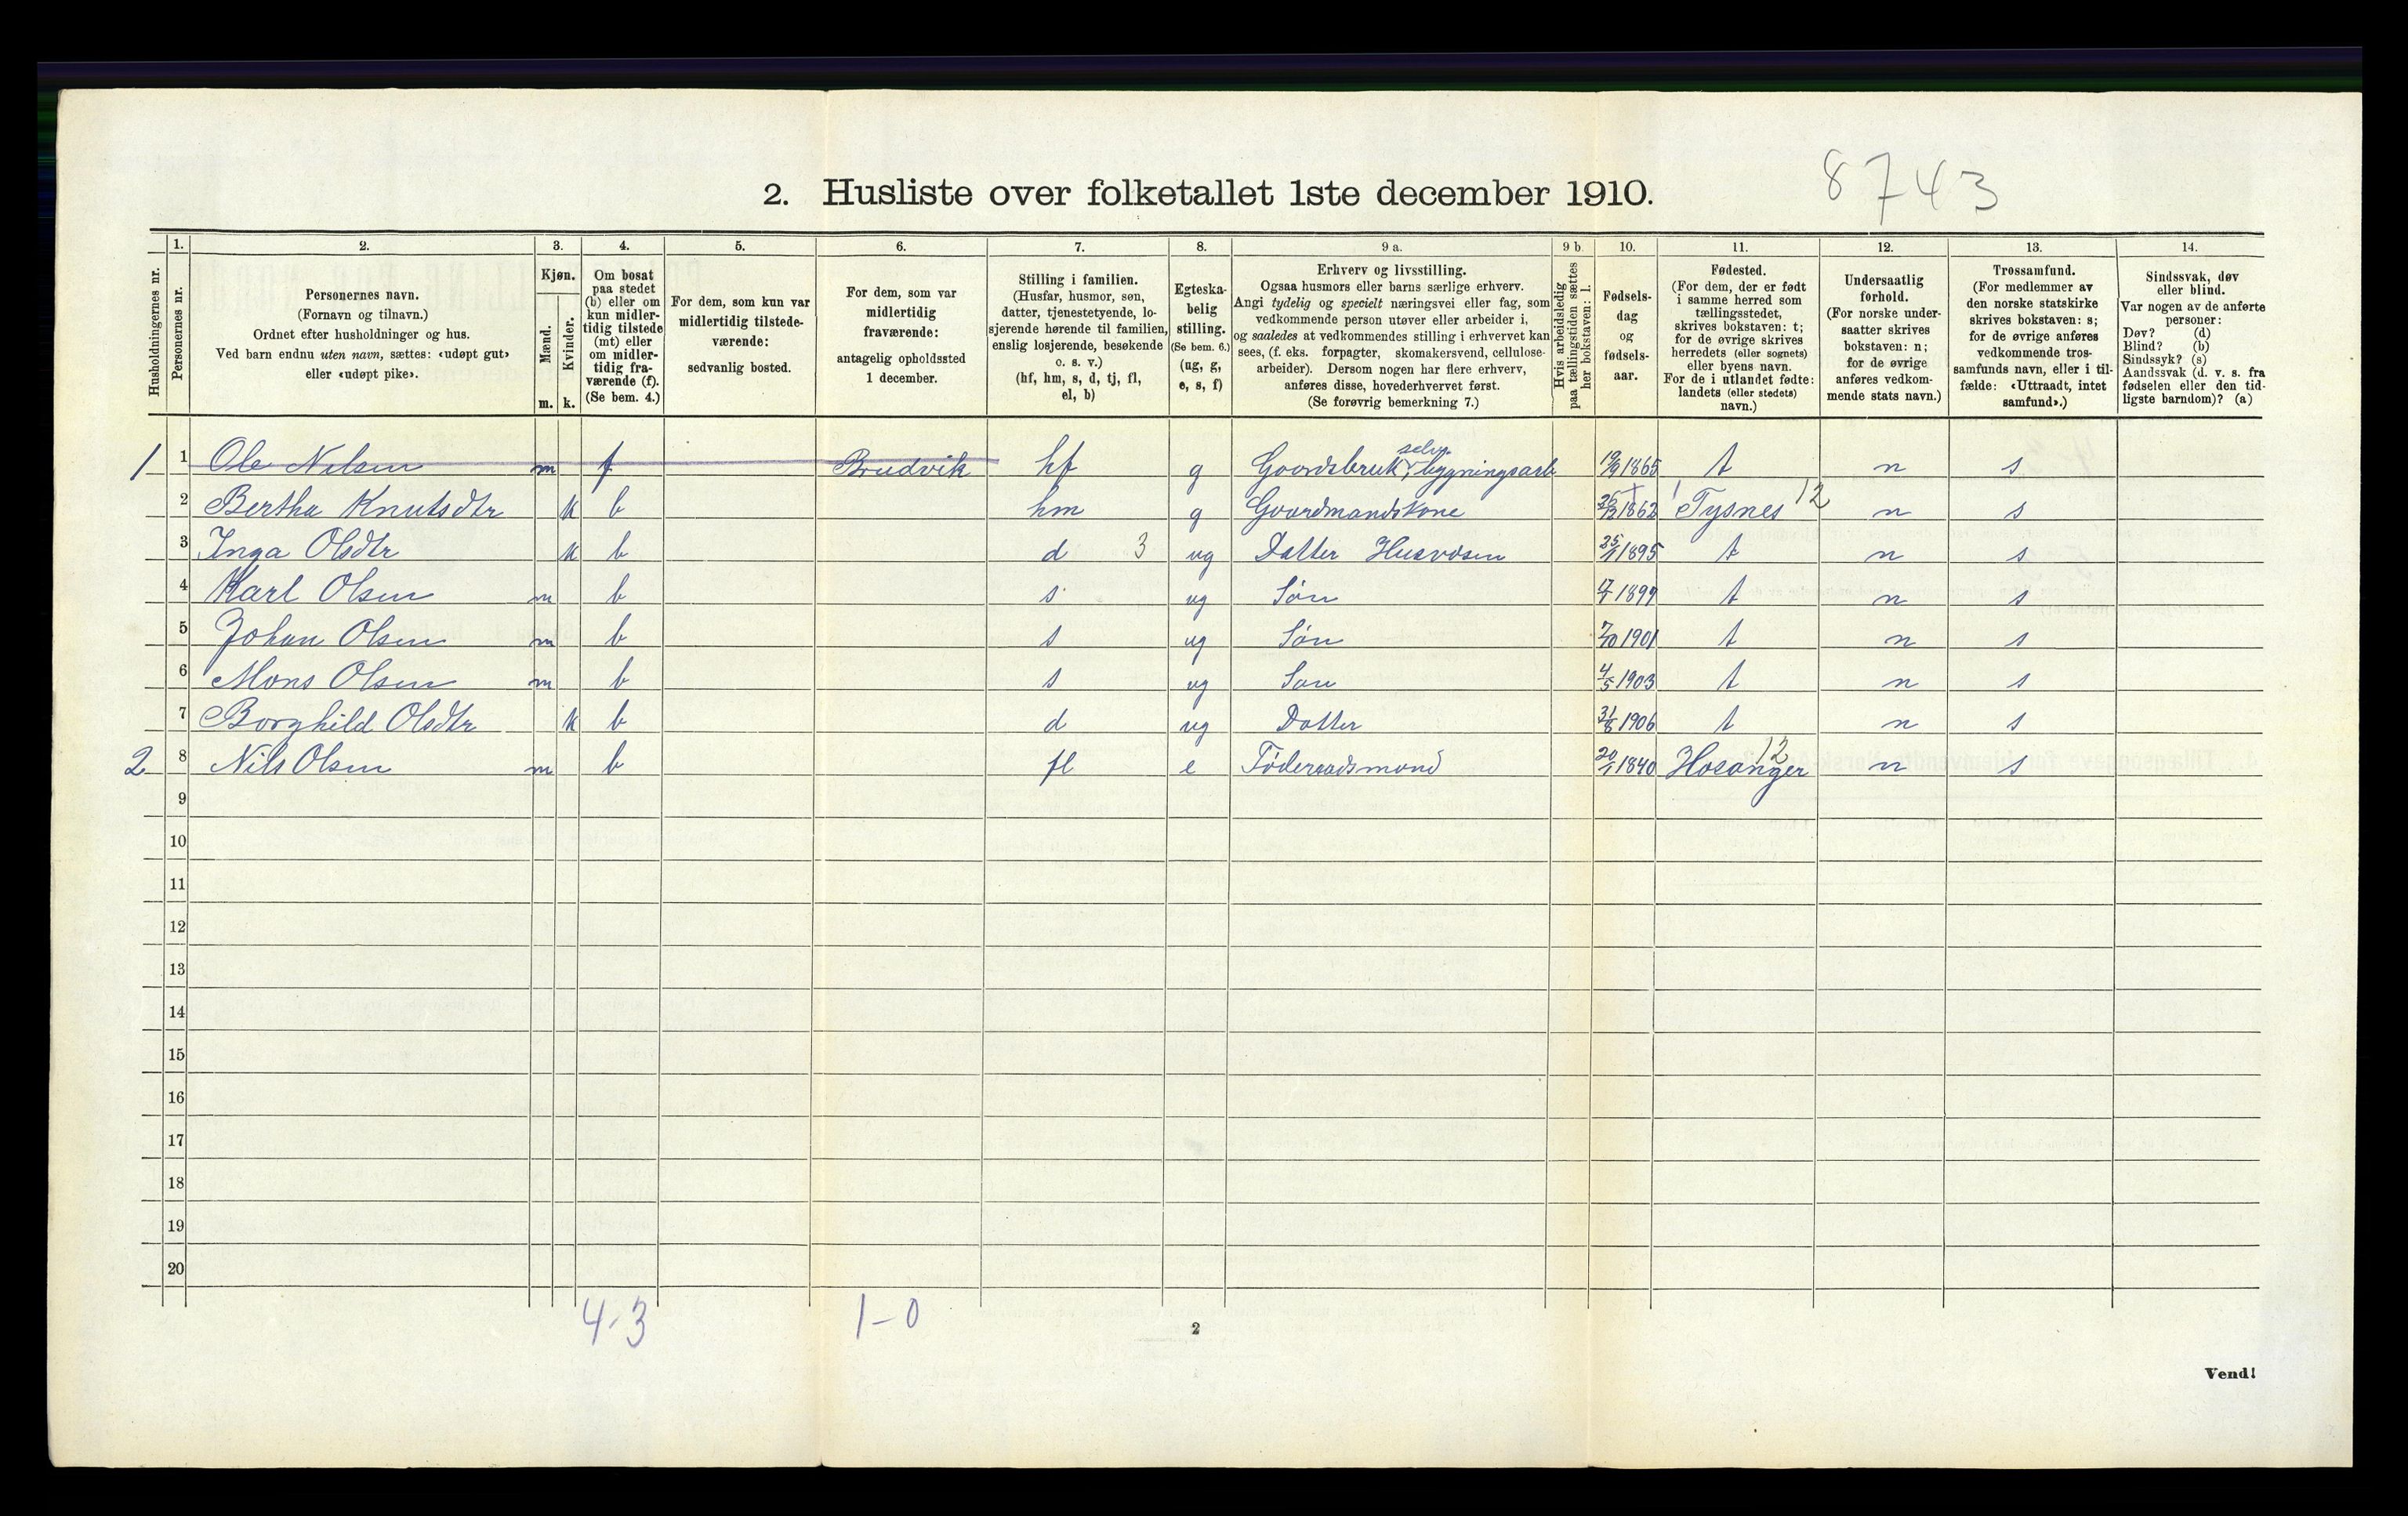 8743
2. Husliste over folketallet 1ste december 1910.
Husholdningernes nr.
1. Personernes nr.
2. Personernes navn.
(Fornavn og tilnavn.)
Ordnet efter husholdninger og hus.
Ved barn endnu uten navn, sættes: «udøpt gut»
eller «udøpt pike».
3. Kjøn.
Mænd. m.
Kvinder. k.
4. Om bosat
paa stedet
(b) eller om
kun midler-
tidig tilstede
(mt) eller
om midler-
tidig fra-
værende (f).
(Se bem. 4.)
5. For dem, som kun var
midlertidig tilstede-
værende:
sedvanlig bosted.
6. For dem, som var
midlertidig
fraværende:
antagelig opholdssted
1 december.
7. Stilling i familien.
(Husfar, husmor, søn,
datter, tjenestetyende, lo-
sjerende hørende til familien,
enslig losjerende, besøkende
o. s. v.)
(hf, hm, s, d, tj, fl,
el, b)
8. Egteska-
belig
stilling.
(Se bem. 6.)
(ug, g,
e, s, f)
9 a. Erhverv og livsstilling.
Ogsaa husmors eller barns særlige erhverv.
Angi tydelig og specielt næringsvei eller fag, som
vedkommende person utøver eller arbeider i,
og saaledes at vedkommendes stilling i erhvervet kan
sees, (f. eks. forpagter, skomakersvend, cellulose-
arbeider). Dersom nogen har flere erhverv,
anføres disse, hovederhvervet først.
(Se forøvrig bemerkning 7.)
9 b. Hvis arbeidsledig
paa tællingstiden sættes
her bokstaven: l.
10. Fødsels-
dag
og
fødsels-
aar.
11. Fødested.
(For dem, der er født
i samme herred som
tællingsstedet,
skrives bokstaven: t;
for de øvrige skrives
herredets (eller sognets)
eller byens navn.
For de i utlandet fødte:
landets (eller stedets)
navn.)
12. Undersaatlig
forhold.
(For norske under-
saatter skrives
bokstaven: n;
for de øvrige
anføres vedkom-
mende stats navn.)
13. Trossamfund.
(For medlemmer av
den norske statskirke
skrives bokstaven: s;
for de øvrige anføres
vedkommende tros-
samfunds navn, eller i til-
fælde: «Uttraadt, intet
samfund».)
14. Sindssvak, døv
eller blind.
Var nogen av de anførte
personer:
Døv? (d)
Blind? (b)
Sindssyk? (s)
Aandssvak (d. v. s. fra
fødselen eller den tid-
ligste barndom)? (a)
1 1 Ole Nilsen m f Brudvik hf g Gaardsbruk, selv. bygningsarb 19/9 1865 t n s
2 Bertha Knutsdtr k b hm g Gaardmandskone 1862 Tysnes 12 n s
3 Inga Olsdtr k b d 3 ug Datter Husvæsen 25/1 1895 t n s
4 Karl Olsen m b s ug Søn 1899 t n s
5 Johan Olsen m b s ug Søn 7/10 1901 t n s
6 Mons Olsen m b s ug Søn 4/5 1903 t n s
7 Borghild Olsdtr k b d ug Datter 31/8 1906 t n s
2 8 Nils Olsen m b fl e Føderaadsmand 20/1 1840 Hosanger 12 n s
9
10
11
12
13
14
15
16
17
18
19
20
4-3 1-0
2
Vend!